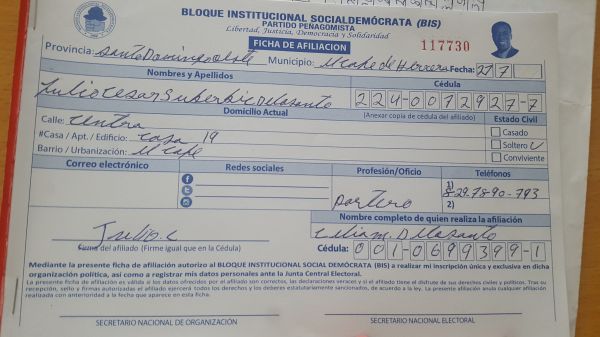 BLOQUE INSTITUCIONAL SOCIALDEMÓCRATA (BIS)
PARTIDO PEÑAGOMISTA
Libertad, Justicia, Democracia y Solidaridad
FICHA DE AFILIACION
117730
Provincia: Santo Domingo Municipio: de Herrera Fecha: 27 7
Nombres y Apellidos Cédula
Julio Cesar 224-0072927-7
Domicilio Actual (Anexar copia de cédula del afiliado) Estado Civil
Calle: Casado
#Casa / Apt. / Edificio: casa 19 Soltero
Barrio / Urbanización: Conviviente
Correo electrónico Redes sociales Profesión/Oficio Teléfonos
1) 829-7890-793
2)
Nombre completo de quien realiza la afiliación
Julio. C
Firma del afiliado (Firme igual que en la Cédula) Cédula: 001-0699399-1
Mediante la presente ficha de afiliación autorizo al BLOQUE INSTITUCIONAL SOCIAL DEMÓCRATA (BIS) a realizar mi inscripción única y exclusiva en dicha
organización política, así como a registrar mis datos personales ante la Junta Central Electoral.
La presente ficha de afiliación es válida si los datos ofrecidos por el afiliado son correctos, las declaraciones veraces y si el afiliado tiene el disfrute de sus derechos civiles y políticos. Tras su
recepción, sello y firmas autorizadas el afiliado ejercerá todos los derechos y los deberes estatutariamente sancionados, de acuerdo a la ley. La presente afiliación anula cualquier afiliación
realizada con anterioridad a la fecha que aparece en esta ficha.
SECRETARIO NACIONAL DE ORGANIZACIÓN SECRETARIO NACIONAL ELECTORAL